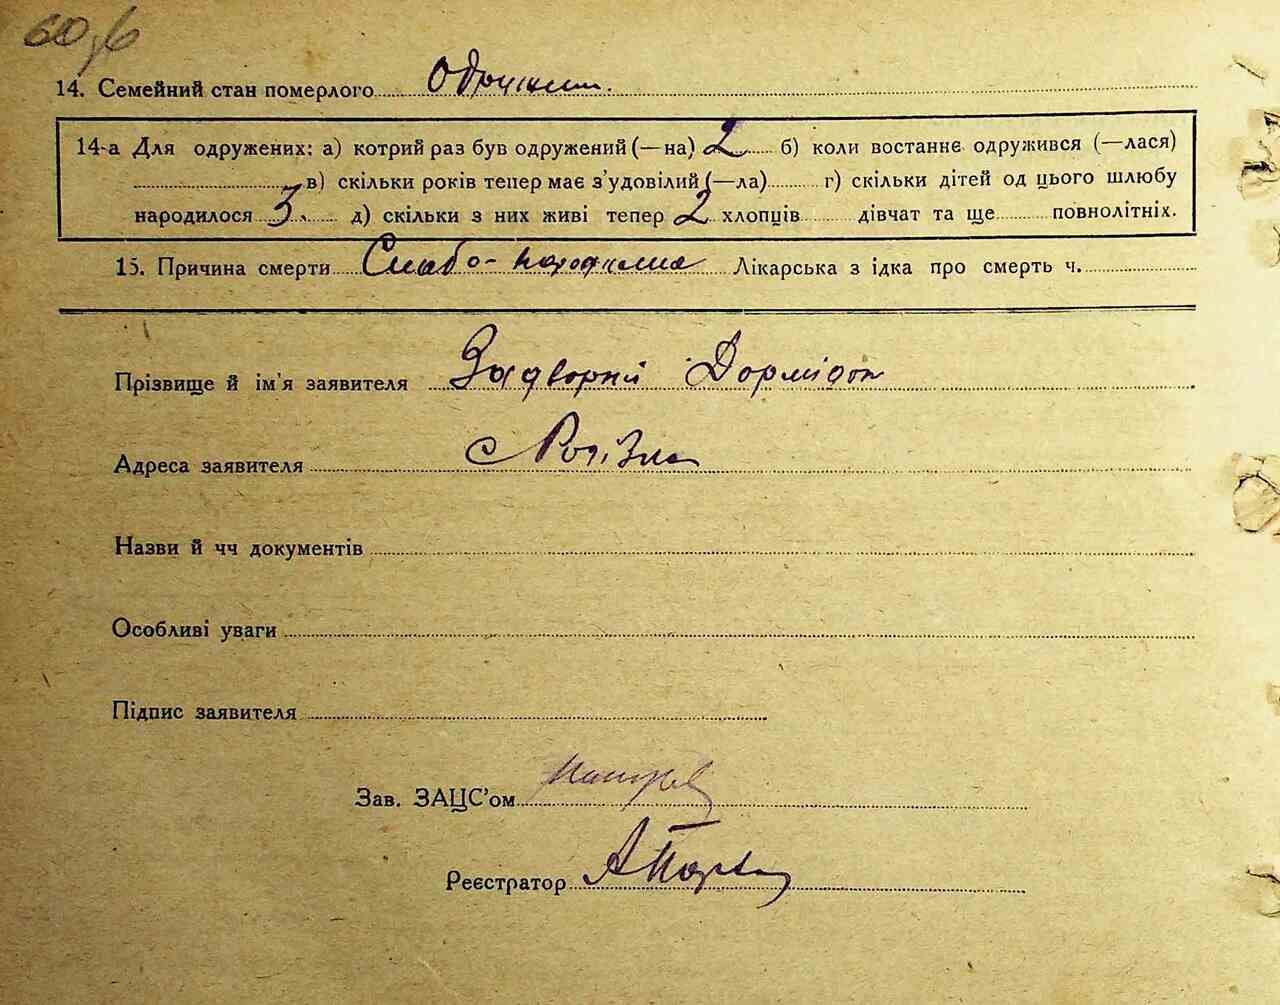 14. Семейний стан померлого Одружен.
14-а Для одружених: а) котрий раз був одружений (—на) 2 б) коли востаннє одружився (—лася)
в) скільки років тепер має з'удовілий (—ла) г) скільки дітей од цього шлюбу
народилося 3. д) скільки з них живі тепер 2 хлопців дівчат та ще повнолітніх.
15. Причина смерти Слабо- Лікарська з ідка про смерть ч.
Прізвище й ім'я заявителя Задворній Дормідон
Адреса заявителя с
Назви й чч документів
Особливі уваги
Підпис заявителя
Зав. ЗАЦС'ом
Реєстратор